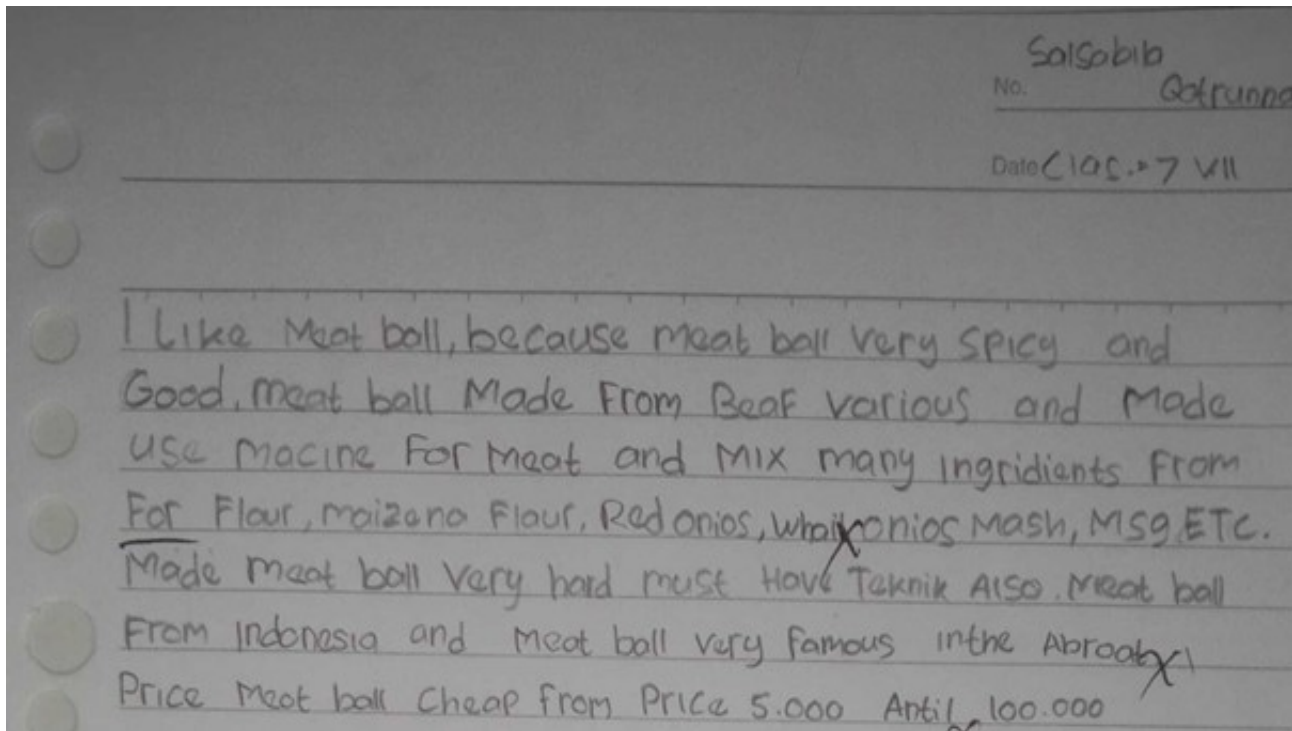 Salsabila
No. Qotrunna
Date Clas.: 7 VII
I Like Meat ball, because meat ball very spicy and
Good. meat ball Made From Beaf various and Made
use macine For meat and Mix many ingridients From
For Flour, maizana Flour, Red onios, whait onios Mash, Msg, ETC.
Made meat ball Very hard must Have Teknik Also. Meat ball
From Indonesia and meat ball very famous inthe Abroat
Price Meat ball Cheap From Price 5.000 Antil 100.000